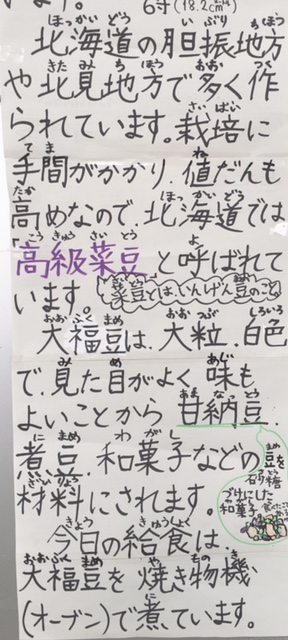 います。 6寸(18.2cm
北海道の胆振地方
や北見地方で多く作
られています。栽培に
手間がかかり、値だんも
高めなので、北海道では
「高級菜豆」と呼ばれて
います。
菜豆とは、いんげん豆のこと
大福豆は、大粒、白色
で、見た目がよく味も
よいことから 甘納豆
煮豆、和菓子などの
材料にされます。
豆を
砂糖
づけにした
和菓子
今日の給食は、
大福豆を焼き物機
(オーブン)で煮ています。